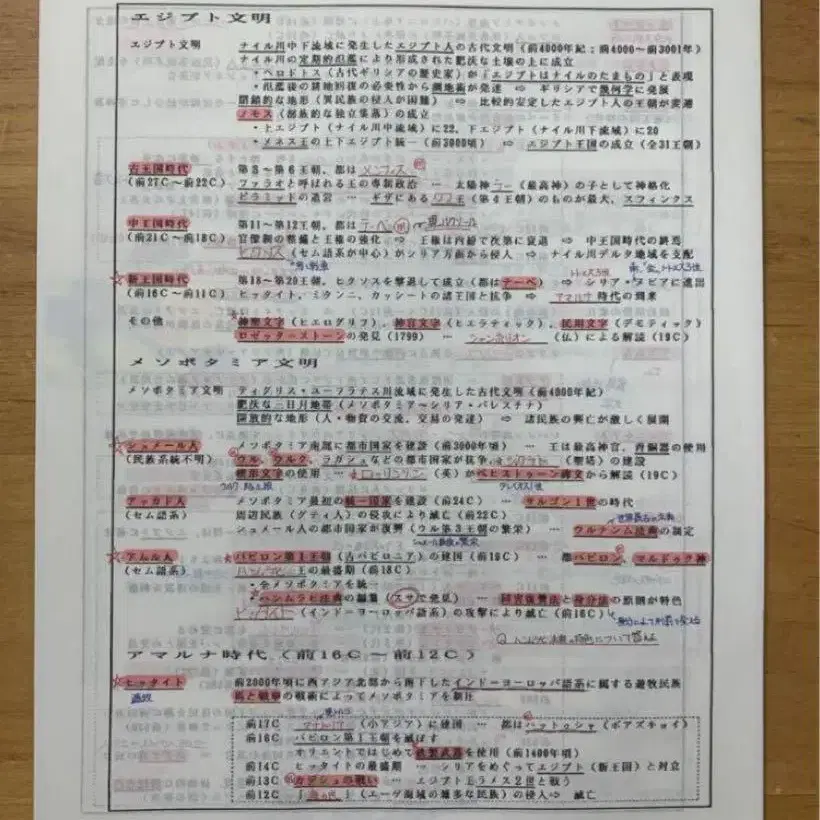 エジプト文明
エジプト文明 ナイル川中下流域に発生したエジプト人の古代文明（前4000年紀：前4000〜前3001年）
ナイル川の定期的氾濫により形成された肥沃な土壌の上に成立
・ヘロドトス（古代ギリシアの歴史家）が「エジプトはナイルのたまもの」と表現
・氾濫後の耕地回復の必要性から測地術が発達 ⇨ ギリシアで幾何学に発展
閉鎖的な地形（異民族の侵入が困難） ⇨ 比較的安定したエジプト人の王朝が変遷
ノモス（部族的な独立集落）の成立
・上エジプト（ナイル川中流域）に22、下エジプト（ナイル川下流域）に20
・メネス王の上下エジプト統一（前3000頃） ⇨ エジプト王国の成立（全31王朝）
古王国時代 第3〜第6王朝、都はメンフィス
（前27C〜前22C） ファラオと呼ばれる王の専制政治 … 太陽神ラー（最高神）の子として神格化
ピラミッドの造営 … ギザにあるクフ王（第4王朝）のものが最大、スフィンクス
中王国時代 第11〜第12王朝、都はテーベ 現ルクソール
（前21C〜前18C） 官僚制の整備と王権の強化 ⇨ 王権は内紛で次第に衰退 ⇨ 中王国時代の終焉
ヒクソス（セム語系が中心）がシリア方面から侵入 ⇨ ナイル川デルタ地域を支配
トトメス3世
☆新王国時代 第18〜第20王朝、ヒクソスを撃退して成立（都はテーベ） ⇨ シリア・ヌビアに進出
（前16C〜前11C） ヒッタイト、ミタンニ、カッシートの諸王国と抗争 ⇨ アマルナ時代の到来
その他 神聖文字（ヒエログリフ）、神官文字（ヒエラティック）、民用文字（デモティック）
ロゼッタ＝ストーンの発見（1799） … シャンポリオン（仏）による解読（19C）
メソポタミア文明
メソポタミア文明 ティグリス・ユーフラテス川流域に発生した古代文明（前4000年紀）
肥沃な三日月地帯（メソポタミア〜シリア・パレスチナ）
開放的な地形（人・物資の交流、交易の発達） ⇨ 諸民族の興亡が激しく展開
☆シュメール人 メソポタミア南部に都市国家を建設（前3000年頃） … 王は最高神官、青銅器の使用
（民族系統不明） ウル、ウルク、ラガシュなどの都市国家が抗争、ジグラト（聖塔）の建設
楔形文字の使用 … ローリンソン（英）がベヒストゥーン碑文から解読（19C）
アッカド人 メソポタミア最初の統一国家を建設（前24C） … サルゴン1世の時代
（セム語系） 周辺民族（グティ人）の侵攻により滅亡（前22C）
シュメール人の都市国家が復興（ウル第3王朝の繁栄） … ウルナンム法典の制定
☆アムル人 バビロン第1王朝（古バビロニア）の建国（前19C） … 都バビロン、マルドゥク神
（セム語系） ハンムラビ王の最盛期（前18C）
・全メソポタミアを統一
・ハンムラビ法典の編纂（スサで発見） … 同害復讐法と身分法の原則が特色
ヒッタイト（インド＝ヨーロッパ語系）の攻撃により滅亡（前16C）
アマルナ時代（前16C〜前12C）
☆ヒッタイト 前2000年頃に西アジア北部から南下したインド＝ヨーロッパ語系に属する遊牧民族
馬と戦車の戦術によってメソポタミアを制圧
前17C アナトリア（小アジア）に建国 … 都はハットゥシャ（ボアズキョイ）
前16C バビロン第1王朝を滅ぼす
オリエントではじめて鉄製武器を使用（前1400年頃）
前14C ヒッタイトの最盛期 … シリアをめぐってエジプト（新王国）と対立
前13C カデシュの戦い … エジプト王ラメス2世と戦う
前12C 「海の民」（エーゲ海域の雑多な民族）の侵入⇨ 滅亡